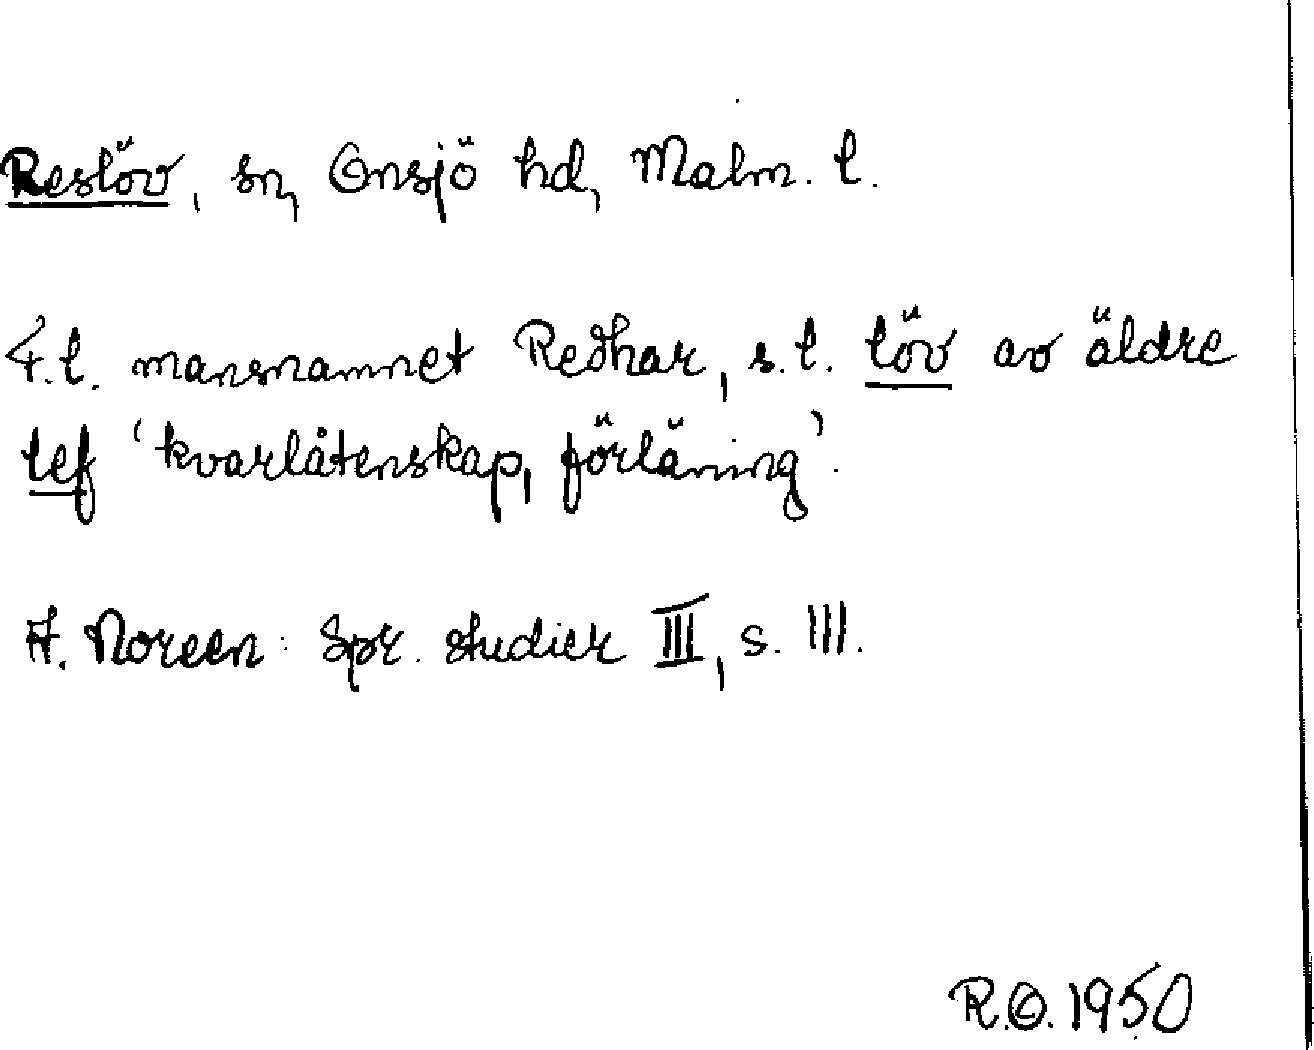 Reslöv, sn, Onsjö hd, Malm. l.
F.l. mansnamnet Reðhar, s.l. löv av äldre
lef 'kvarlåtenskap, förläning'.
A. Noreen: Spr. studier III, s. 111.
R.O. 1950